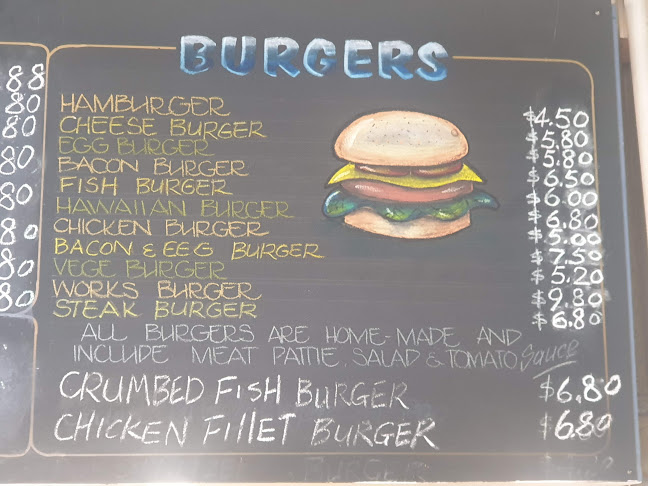 BURGERS
88
80
80
80
80
80
80
80
HAMBURGER $4.50
CHEESE BURGER $5.80
EGG BURGER $5.80
BACON BURGER $6.50
FISH BURGER $6.00
HAWAIIAN BURGER $6.80
CHICKEN BURGER $5.00
BACON & EEG BURGER $7.50
VEGE BURGER $5.20
WORKS BURGER $9.80
STEAK BURGER $6.80
ALL BURGERS ARE HOME-MADE AND
INCLUDE MEAT PATTIE, SALAD & TOMATO Sauce
CRUMBED FISH BURGER $6.80
CHICKEN FILLET BURGER $6.80